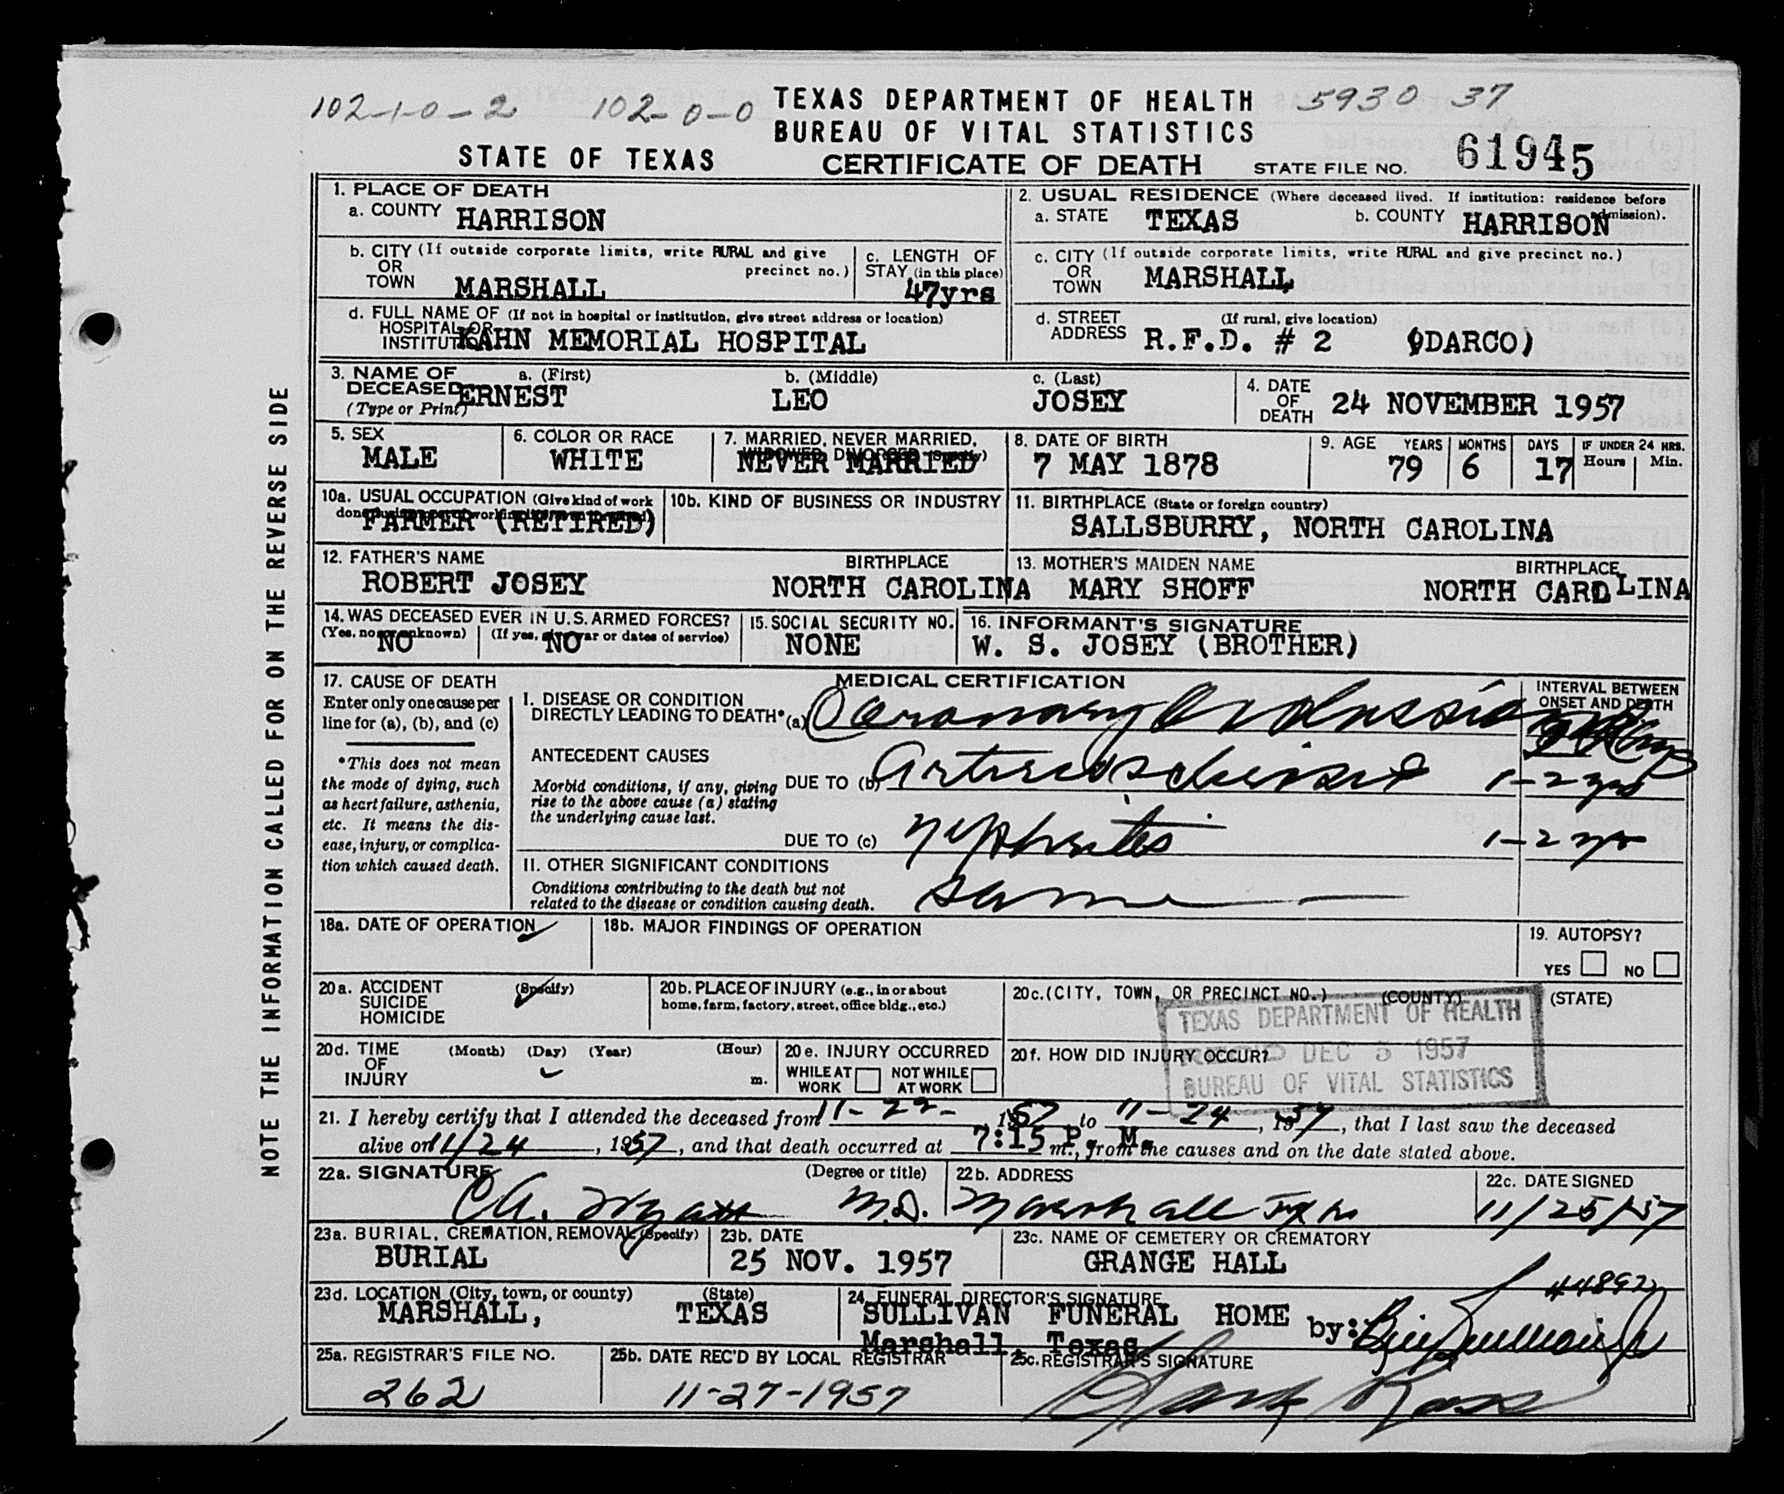 102-1-0-2 102-0-0 TEXAS DEPARTMENT OF HEALTH 5930 37
BUREAU OF VITAL STATISTICS
STATE OF TEXAS CERTIFICATE OF DEATH STATE FILE NO. 61945
NOTE THE INFORMATION CALLED FOR ON THE REVERSE SIDE
1. PLACE OF DEATH
a. COUNTY HARRISON
2. USUAL RESIDENCE (Where deceased lived. If institution: residence before admission).
a. STATE TEXAS b. COUNTY HARRISON
b. CITY (If outside corporate limits, write RURAL and give precinct no.)
OR
TOWN MARSHALL
c. LENGTH OF
STAY (in this place)
47yrs
c. CITY (If outside corporate limits, write RURAL and give precinct no.)
OR
TOWN MARSHALL
d. FULL NAME OF (If not in hospital or institution, give street address or location)
HOSPITAL OR
INSTITUTION KAHN MEMORIAL HOSPITAL
d. STREET (If rural, give location)
ADDRESS R.F.D. # 2 (DARCO)
3. NAME OF a. (First) b. (Middle) c. (Last)
DECEASED ERNEST LEO JOSEY
(Type or Print)
4. DATE
OF
DEATH 24 NOVEMBER 1957
5. SEX
MALE
6. COLOR OR RACE
WHITE
7. MARRIED, NEVER MARRIED,
WIDOWED, DIVORCED (Specify)
NEVER MARRIED
8. DATE OF BIRTH
7 MAY 1878
9. AGE YEARS MONTHS DAYS IF UNDER 24 HRS.
79 6 17 Hours Min.
10a. USUAL OCCUPATION (Give kind of work
FARMER (RETIRED)
10b. KIND OF BUSINESS OR INDUSTRY
11. BIRTHPLACE (State or foreign country)
SALLSBURRY, NORTH CAROLINA
12. FATHER'S NAME BIRTHPLACE
ROBERT JOSEY NORTH CAROLINA
13. MOTHER'S MAIDEN NAME BIRTHPLACE
MARY SHOFF NORTH CAROLINA
14. WAS DECEASED EVER IN U.S. ARMED FORCES?
(Yes, no or unknown) (If yes, give war or dates of service)
NO NO
15. SOCIAL SECURITY NO.
NONE
16. INFORMANT'S SIGNATURE
W. S. JOSEY (BROTHER)
17. CAUSE OF DEATH
Enter only one cause per
line for (a), (b), and (c)
*This does not mean
the mode of dying, such
as heart failure, asthenia,
etc. It means the dis-
ease, injury, or complica-
tion which caused death.
MEDICAL CERTIFICATION
INTERVAL BETWEEN
ONSET AND DEATH
I. DISEASE OR CONDITION
DIRECTLY LEADING TO DEATH* (a) Coronary Occlussion
ANTECEDENT CAUSES
Morbid conditions, if any, giving
rise to the above cause (a) stating
the underlying cause last.
DUE TO (b) Arteriosclerosis 1-2 yrs
DUE TO (c) nephritis 1-2 yrs
II. OTHER SIGNIFICANT CONDITIONS
Conditions contributing to the death but not
related to the disease or condition causing death.
same
18a. DATE OF OPERATION
18b. MAJOR FINDINGS OF OPERATION
19. AUTOPSY?
YES NO
20a. ACCIDENT (Specify)
SUICIDE
HOMICIDE
20b. PLACE OF INJURY (e.g., in or about
home, farm, factory, street, office bldg., etc.)
20c. (CITY, TOWN, OR PRECINCT NO.) (COUNTY) (STATE)
TEXAS DEPARTMENT OF HEALTH
REC'D DEC 5 1957
BUREAU OF VITAL STATISTICS
20d. TIME (Month) (Day) (Year) (Hour)
OF
INJURY m.
20e. INJURY OCCURRED
WHILE AT WORK NOT WHILE AT WORK
20f. HOW DID INJURY OCCUR?
21. I hereby certify that I attended the deceased from 11-22-, 1957 to 11-24, 1957, that I last saw the deceased
alive on 11/24, 1957, and that death occurred at 7:15 P. M. m., from the causes and on the date stated above.
22a. SIGNATURE (Degree or title)
CA. Wyatt M.D.
22b. ADDRESS
Marshall Texas
22c. DATE SIGNED
11/25/57
23a. BURIAL, CREMATION, REMOVAL (Specify)
BURIAL
23b. DATE
25 NOV. 1957
23c. NAME OF CEMETERY OR CREMATORY
GRANGE HALL
23d. LOCATION (City, town, or county) (State)
MARSHALL, TEXAS
24. FUNERAL DIRECTOR'S SIGNATURE
SULLIVAN FUNERAL HOME by: Bill Sullivan Jr
Marshall, Texas
25a. REGISTRAR'S FILE NO.
262
25b. DATE REC'D BY LOCAL REGISTRAR
11-27-1957
25c. REGISTRAR'S SIGNATURE